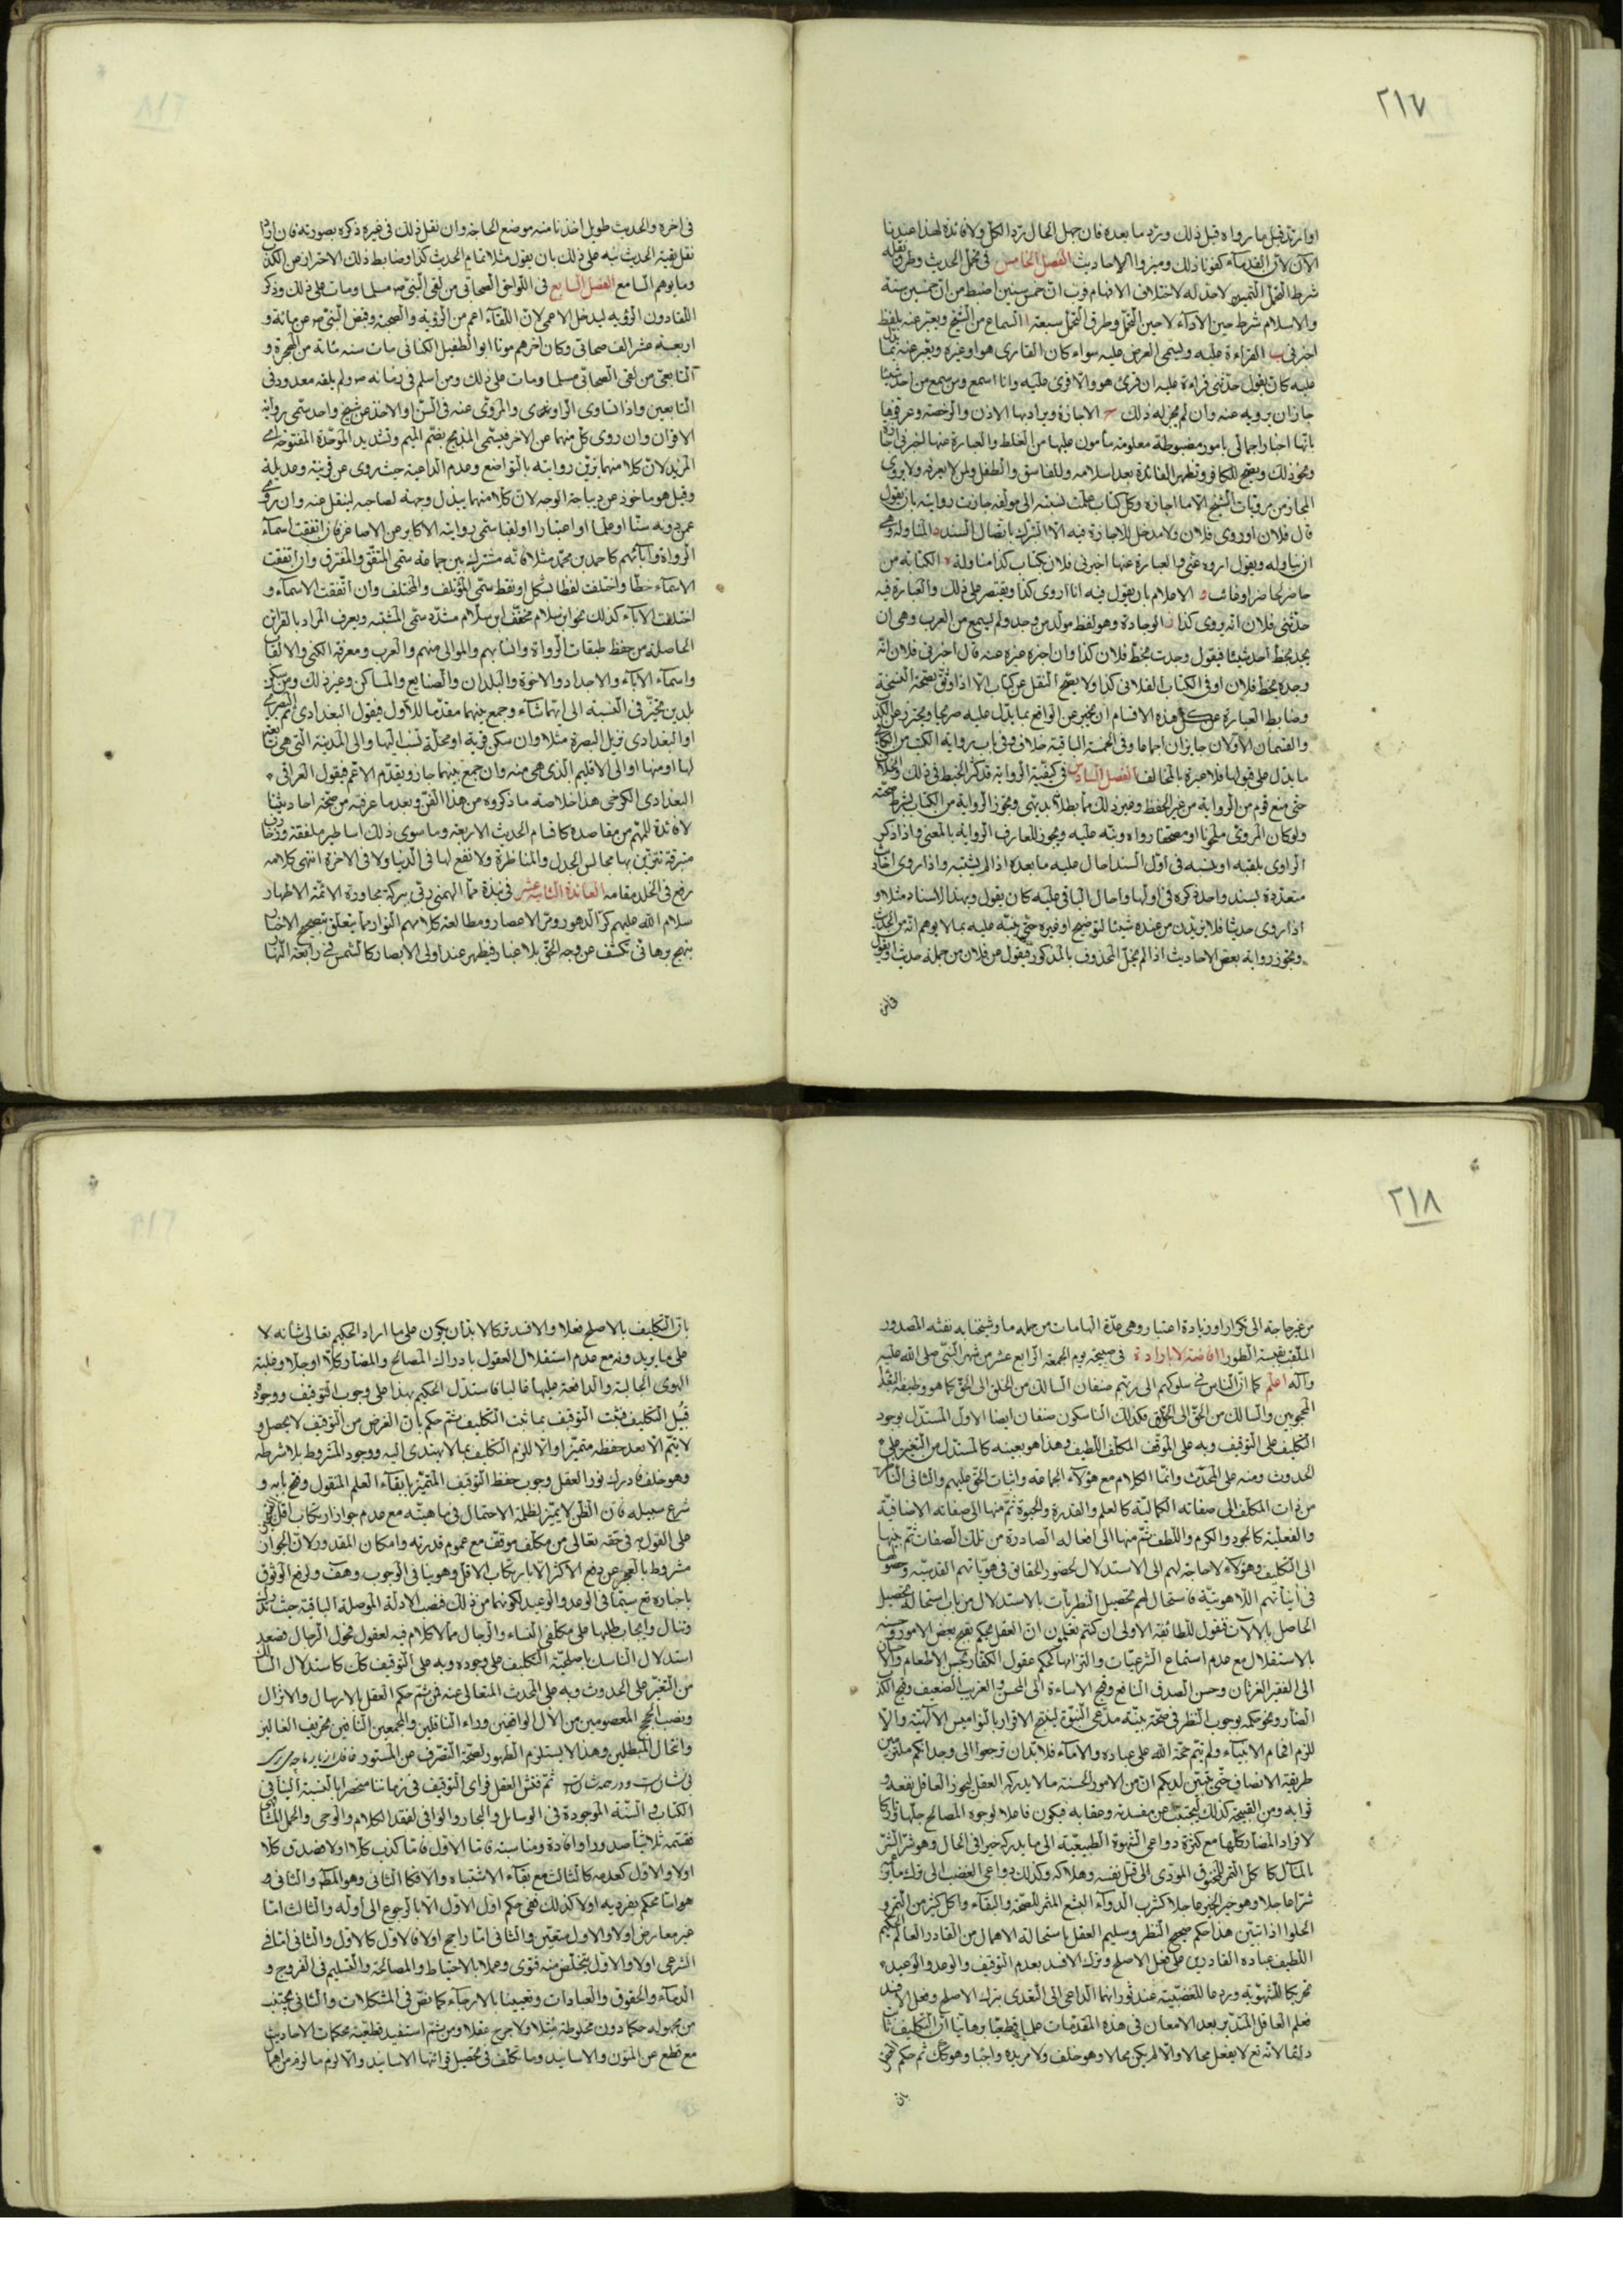 ٢١٧
او ارتد قبل ما رواه قبل ذلك ويرد ما بعده فان جهل الحال يرد الكل ولا فائدة لهذا عندنا
الآن لان القدماء كفونا ذلك وميزوا الاحاديث الفصل الخامس فى تحمل الحديث وطرق نقله
شرط التحمل التميز لا حد له لاختلاف الافهام فرب ابن خمس سنين اضبط من ابن خمسين سنة
والاسلام شرط حين الاداء لا حين التحمل وطرق التحمل سبعة ا السماع من الشيخ ويعبر عنه بلفظ
اخبرنى ب القراءة عليه ويسمى العرض عليه سواء كان القارى هو او غيره ويعبر عنه
عليه كان يقول حدثنى قراءة عليه ان قرئ هو والا قرئ عليه وانا اسمع ومن سمع من احد شيئا
جاز ان يرويه عنه وان لم يجز له ذلك ج الاجازة ويراد بها الاذن والرخصة وعرفوها
بانها اخبار اجمالى بامور مضبوطة معلومة مأمون عليها من الغلط والعبارة عنها اخبرنى اجازة
ونحو ذلك ويصح للكافر وتظهر الفائدة بعد اسلامه وللفاسق والطفل ولمن لا يعرفه ولا يروى
المجاز من مرويات الشيخ الا ما اجازه وكل كتاب علمت نسبته الى مؤلفه جازت روايته بان يقول
قال فلان او روى فلان ولا مدخل للاجازة فيه الا التبرك باتصال السند د المناولة وهى
ان يناوله ويقول اروه عنى والعبارة عنها اخبرنى فلان بكتاب كذا مناولة ه الكتابة من
حاضر لحاضر او غائب و الاعلام بان يقول فيه انا اروى كذا ويقتصر على ذلك والعبارة فيه
حدثنى فلان انه روى كذا ز الوجادة وهو لفظ مولد من وجد ولم يسمع من العرب وهى ان
يجد بخط احد شيئا فيقول وجدت بخط فلان كذا وان اخبره غيره عنه قال اخبرنى فلان انه
وجده بخط فلان او فى الكتاب الفلانى كذا ولا يصح النقل عن كتاب الا اذا وثق بصحة النسخة
وضابط العبارة عن كل هذه الاقسام ان يخبر عن الواقع بما يدل عليه صريحا ويحترز عن الكذب
والقسمان الاولان جايزان اجماعا وفى الخمسة الباقية خلاف وفى باب رواية الكتب من الكافى
ما يدل على قبولها فلا عبرة بالمخالف الفصل السادس فى كيفية الرواية قد كثر الخبط فى ذلك والخلاف
حتى منع قوم من الرواية من غير الحفظ وغير ذلك مما بطلانه بديهى وتجوز الرواية من الكتاب بشرط صحته
ولو كان المروى ملحونا او مصحفا رواه ونبه عليه ويجوز للعارف الرواية بالمعنى واذا ذكر
الراوى بلقبه او نسبه فى اول السند احال عليه ما بعده اذا لم يشتبه واذا روى احاديث
متعددة بسند واحد ذكره فى اولها واحال الباقى عليه كان يقول وبهذا الاسناد مثلا و
اذا روى حديثا فلا يزيدن من عنده شيئا لتوضيح او غيره حتى ينبه عليه بما لا يوهم انه من الحديث
وتجوز رواية بعض الاحاديث اذا لم يخل المحذوف بالمذكور فيقول عن فلان من جملة حديث او يقول
فى اخره
فى اخره والحديث طويل اخذنا منه موضع الحاجة وان نقل ذلك فى غيره ذكره بصورته فان اراد
نقل بقية الحديث نبه على ذلك بان يقول مثلا تمام الحديث كذا وضابط ذلك الاحتراز عن الكذب
وما يوهم السامع الفصل السابع فى اللواحق الصحابى من لقى النبى ص مسلما ومات على ذلك وذكر
اللقاء دون الرؤية ليدخل الاعمى لان اللقاء اعم من الرؤية والصحبة وقبض النبى ص عن مائة و
اربعة عشر الف صحابى وكان اخرهم موتا ابو الطفيل الكنانى مات سنة مائة من الهجرة و
التابعى من لقى الصحابى مسلما ومات على ذلك ومن اسلم فى زمانه ص ولم يلقه معدود فى
التابعين واذا تساوى الراوى والمروى عنه فى السن او الاخذ عن شيخ واحد سمى رواية
الاقران وان روى كل منهما عن الاخر فيسمى المدبج بضم الميم وتشديد الموحدة المفتوحة اى
المزين لان كلا منهما يزين روايته بالتواضع وعدم الداعية حيث روى عن قرينه وعديله
وقيل هو ماخوذ عن ديباجة الوجه لان كلا منهما يبذل وجهه لصاحبه لينقل عنه وان روى
عمن دونه سنا او علما او اعتبارا او لقيا سمى رواية الاكابر عن الاصاغر فان اتفقت اسماء
الرواة وآبائهم كاحمد بن محمد مثلا فانه مشترك بين جماعة سمى المتفق والمفترق وان اتفقت
الاسماء خطا واختلفت لفظا بشكل او نقط سمى المؤتلف والمختلف وان اتفقت الاسماء و
اختلفت الآباء كذلك نحو ابن سلام مخفف ابن سلام مشدد سمى المشتبه ويعرف المراد بالقراين
الحاصلة من حفظ طبقات الرواة وانسابهم والموالى منهم والعرب ومعرفة الكنى والالقاب
واسماء الآباء والاجداد والاخوة والبلدان والصنايع والمساكن وغير ذلك ومن سكن
بلدين مخير فى النسبة الى ايهما شاء وجمع بينهما مقدما للاول فيقول البغدادى ثم البصرى
او البغدادى نزيل البصرة مثلا وان سكن قرية او محلة نسب اليها والى المدينة التى هى تابعة
لها او منها او الى الاقليم الذى هى منه وان جمع بينهما جاز ويقدم الاعم فيقول العراقى
البغدادى الكرخى هذا خلاصة ما ذكروه من هذا الفن وبعد ما عرفته من صحة احاديثنا
لا فائدة للمهم من مقاصده كاقسام الحديث الاربعة وما سوى ذلك اساطير ملفقة وزخارف
منرقة تتزين بها مجالس الجدل والمناظرة ولا نفع لها فى الدنيا ولا فى الاخرة انتهى كلامه
رفع فى الخلد مقامه العائدة الثانية عشر فى نبذة مما الهمنى ربى ببركة مجاورة الائمة الاطهار
سلام الله عليهم كر الدهور ومر الاعصار ومطالعة كلامهم النوار مما يتعلق بتصحيح الاخبار
بنهج برهانى تكشف عن وجه الحق بلا غبار فيظهر عند اولى الابصار كالشمس فى رابعة النهار
٢١٨
من غير حاجة الى تكرار او زيادة اعتبار وهى عدة الهامات من جمله ما وشيخنا به نفثة المصدور
الملقب بقبسة الطور افاضة لا بارادة فى صبيحة يوم الجمعة الرابع عشر من شهر النبى صلى الله عليه
وآله اعلم كما ان الناس فى سلوكهم الى ربهم صنفان السالك من الخلق الى الحق كما هو وظيفة
المحجوبين والسالك من الحق الى الخلق فكذلك الناسكون صنفان ايضا الاول المستدل بوجود
التكليف على التوقيف وبه على الموقف المكلف اللطيف وهذا هو بعينه كالمستدل من التغير على
الحدوث ومنه على المحدث وانما الكلام مع هؤلاء الجماعة واثبات الحق عليهم والثانى الناظر
من ذات المكلف الى صفاته الكمالية كالعلم والقدرة والحيوة ثم منها الى صفاته الاضافية
والفعلية كالجود والكرم واللطف ثم منها الى افعاله الصادرة من تلك الصفات ثم منها
الى التكليف وهؤلاء لا حاجة لهم الى الاستدلال لحضور الحقائق فى هوياتهم القدسية وحصولها
فى انياتهم اللاهوتية فاستحال لهم تحصيل النظريات بالاستدلال من باب استحالة تحصيل
الحاصل بالآلات فنقول للطائفة الاولى ان كنتم تعلمون ان العقل يحكم بقبح بعض الامور وحسنه
بالاستقلال مع عدم استماع الشرعيات والتزامها كحكم عقول الكفار بحسن الاطعام والاحسان
الى الفقير الغرثان وحسن الصدق النافع وقبح الاساءة الى المحسن والغريب الضعيف وقبح الكذب
الضار ونحو حكمه بوجوب النظر فى صحة بينة مدعى النبوة لينتج الاقرار بالنواميس الالهية والا
للزم افحام الانبياء ولم يتم حجة الله على عباده والاماء فلا بد ان ترجعوا الى وجدانكم ملتزمين
طريقة الانصاف حتى يتبين لديكم ان من الامور الحسنة ما لا يدركه العقل ليحوز العاقل نفعه و
ثوابه ومن القبيحة كذلك ليجتنب عن مفسدته وعقابه فيكون فاعلا لوجوه المصالح جلها وتاركا
لافراد المضار كلها مع كثرة دواعى الشهوة الطبيعية الى ما يدركه خيرا فى الحال وهو شر الشر
بالمآل كاكل التمر للمحنوق المودى الى قتل نفسه وهلاكه وكذلك دواعى الغضب الى ترك ما يرى
شرا عاجلا وهو خير الخير عاجلا كشرب الدواء البشع المثمر للصحة والبقاء واكل كثير من التمر و
الحلوا اذا تبين هذا حكم صحيح النظر وسليم العقل باستحالة الاهمال من القادر العالم الحكيم
اللطيف عباده القادرين على فعل الاصلح وترك الافسد بعدم التوقيف والوعد والوعيد
تحريكا للشهوية وردعا للغضبية عند ثورانهما الداعى الى التعدى بترك الاصلح وفعل الافسد
فعلم العاقل المتدبر بعد الامعان فى هذه المقدمات علما قطعيا برهانيا ان التكليف ثابت
دائما لانه تع لا يفعل محالا والا لم يكن محالا وهو خلف ولا مريده واجبا وهو كك ثم حكم
بان
بان التكليف بالاصلح فعلا والافسد تركا لا بد ان يكون على ما اراد الحكيم تعالى شأنه لا
على ما يريدونه مع عدم استقلال العقول بادراك المصالح والمضار كلا او جلا وغلبة
الهوى الجالبة والدافعة عليها غالبا فاستدل الحكيم بهذا على وجوب التوقيف ووجوده
قبل التكليف فثبت التوقيف بما ثبت التكليف ثم حكم بان الغرض من التوقيف لا يحصل و
لا يتم الا بعد حفظه متميزا والا للزم التكليف بما لا يهتدى اليه ووجود المشروط بلا شرطه
وهو خلف فادرك نور العقل وجوب حفظ التوقيف المتميز بابقاء العلم المقول وفتح بابه و
شرع سبيله فان الظن لا يميز لظلمة الاحتمال فى ماهيته مع عدم جواز ارتكاب اقل
على القول به فى حقه تعالى من مكلف موقف مع عموم قدرته وامكان المقدور لان الجواز
مشروط بالعجز عن دفع الاكثر الا بارتكاب الاقل وهو ينافى الوجوب وهف ولرفع الوثوق
باخباره تع سيما فى الوعد والوعيد لكونهما من ذلك فنصب الادلة الموصلة الباقية حيث تدرك
وتنال وايجاب طلبها على مكلفى النساء والرجال مما لا كلام فيه لعقول فحول الرجال فصعد
استدلال الناسك باصلحية التكليف على وجوده وبه على التوقيف كك كاستدلال السالك
من التغير على الحدوث وبه على المحدث المتعالى عنه فمن ثم حكم العقل بالارسال والانزال
ونصب الحجج المعصومين من الآل الواقفين وراء الناقلين والمجمعين النافين تحريف الغالين
وانتحال المبطلين وهذا لا يستلزم الظهور لصحة التصرف من المستور
ثم فتش العقل فراى التوقيف فى زماننا منحصرا بالنسبة الينا فى
الكتاب والسنة الموجودة فى الوسايل والبحار والوافى لفقد الكلام والوحى والحمل المشافهى
فقسمه ثلاثيا صدورا وافادة ومناسبة فاما الاول فاما كذب كلا او لا فصدق كلا
اولا والاول كعدمه كالثالث مع بقاء الاشتباه والافكا الثانى وهو المظ والثانى و
هو اما محكم بفرديه اولا كذلك ففى حكم اول الاول الا بالرجوع الى اوله والثالث اما
غير معارض اولا والاول متعين والثانى اما راجح اولا فالاول كالاول والثانى اما فى
الشرعى اولا والاول يتخلص منه فتوى وعملا بالاحتياط والمصالحة والتسليم فى الفروج و
الدماء والحقوق والعبادات وتعيينا بالارجاء كما نص فى المشكلات والثانى يجتنب
من مجهوله حكما دون مخلوطة مثلا ولا حرج عقلا ومن ثم استفيد قطعية محكمات الاحاديث
مع قطع عن المتون والاسانيد وما تكلف فى تحصيل قرائنها الاسانيد والا لزم ما لزم من اهمال